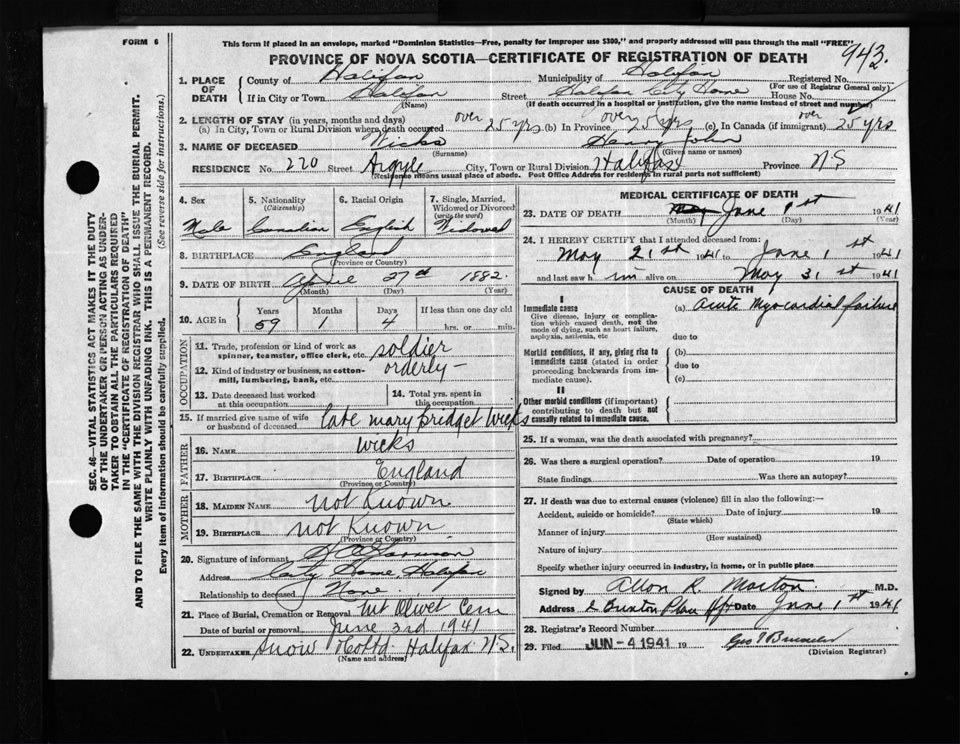 FORM 6
This form if placed in an envelope, marked "Dominion Statistics—Free, penalty for improper use $300," and properly addressed will pass through the mail "FREE"
942.
PROVINCE OF NOVA SCOTIA—CERTIFICATE OF REGISTRATION OF DEATH
1. PLACE OF DEATH
County of Halifax Municipality of Halifax Registered No.
(For use of Registrar General only)
If in City or Town Halifax Street Halifax City Home House No.
(Name) (If death occurred in a hospital or institution, give the name instead of street and number)
2. LENGTH OF STAY (in years, months and days)
(a) In City, Town or Rural Division where death occurred over 25 yrs (b) In Province over 25 yrs (c) In Canada (if immigrant) over 25 yrs
3. NAME OF DECEASED Wicks Henry John
(Surname) (Given name or names)
RESIDENCE No. 220 Street Argyle City, Town or Rural Division Halifax Province N S
(Residence means usual place of abode. Post Office Address for residents in rural parts not sufficient)
4. Sex
Male
5. Nationality
(Citizenship)
Canadian
6. Racial Origin
English
7. Single, Married, Widowed or Divorced
(write the word)
Widowed
8. BIRTHPLACE England
(Province or Country)
9. DATE OF BIRTH April 27th 1882.
(Month) (Day) (Year)
10. AGE in
Years Months Days If less than one day old
59 1 4 hrs. or min.
OCCUPATION
11. Trade, profession or kind of work as spinner, teamster, office clerk, etc. soldier
12. Kind of industry or business, as cotton-mill, lumbering, bank, etc. orderly—
13. Date deceased last worked at this occupation
14. Total yrs. spent in this occupation
15. If married give name of wife or husband of deceased late Mary Bridget Wicks
FATHER
16. NAME Wicks
17. BIRTHPLACE England
(Province or Country)
MOTHER
18. MAIDEN NAME Not Known
19. BIRTHPLACE Not Known
(Province or Country)
20. Signature of informant
Address City Home, Halifax
Relationship to deceased None.
21. Place of Burial, Cremation or Removal Mt Olivet Cem
Date of burial or removal June 3rd 1941
22. UNDERTAKER Snow & Co Ltd. Halifax N.S.
(Name and address)
MEDICAL CERTIFICATE OF DEATH
23. DATE OF DEATH June 1st 1941
(Month) (Day) (Year)
24. I HEREBY CERTIFY that I attended deceased from:
May 21st 1941 to June 1st 1941
and last saw him alive on May 31st 1941
CAUSE OF DEATH
I
Immediate cause
Give disease, injury or complication which caused death, not the mode of dying, such as heart failure, asphyxia, asthenia, etc
(a) Acute Myocardial failure
due to
Morbid conditions, if any, giving rise to immediate cause (stated in order proceeding backwards from immediate cause).
(b)
due to
(c)
II
Other morbid conditions (if important) contributing to death but not causally related to immediate cause.
25. If a woman, was the death associated with pregnancy?
26. Was there a surgical operation? Date of operation 19
State findings Was there an autopsy?
27. If death was due to external causes (violence) fill in also the following:—
Accident, suicide or homicide? Date of injury 19
(State which)
Manner of injury
(How sustained)
Nature of injury
Specify whether injury occurred in industry, in home, or in public place
Signed by Allan R. Morton M.D.
Address Date June 1st 1941
28. Registrar's Record Number
29. Filed JUN - 4 1941 19
(Division Registrar)
SEC. 46—VITAL STATISTICS ACT MAKES IT THE DUTY
OF THE UNDERTAKER OR PERSON ACTING AS UNDER-
TAKER TO OBTAIN ALL THE PARTICULARS REQUIRED
IN THE "CERTIFICATE OF REGISTRATION OF DEATH"
AND TO FILE THE SAME WITH THE DIVISION REGISTRAR WHO SHALL ISSUE THE BURIAL PERMIT.
WRITE PLAINLY WITH UNFADING INK. THIS IS A PERMANENT RECORD.
Every item of information should be carefully supplied. (See reverse side for instructions.)